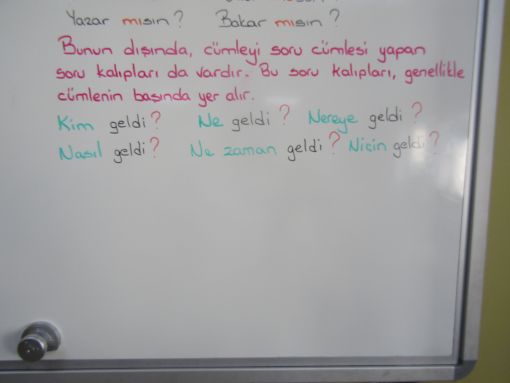 Yazar mısın? Bakar mısın?
Bunun dışında, cümleyi soru cümlesi yapan
soru kalıpları da vardır. Bu soru kalıpları, genellikle
cümlenin başında yer alır.
Kim geldi? Ne geldi? Nereye geldi?
Nasıl geldi? Ne zaman geldi? Niçin geldi?